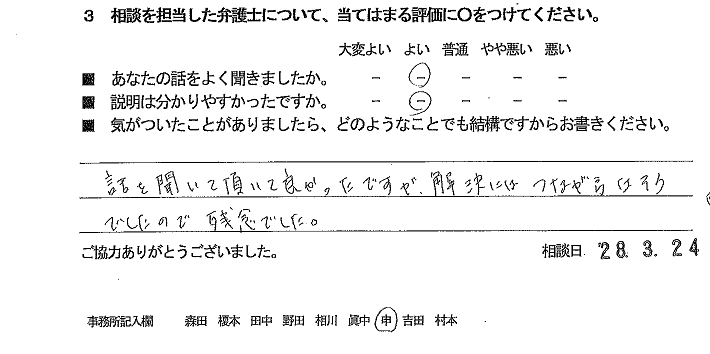 3 相談を担当した弁護士について、当てはまる評価に○をつけてください。
大変よい よい 普通 やや悪い 悪い
■ あなたの話をよく聞きましたか。 － － － － －
■ 説明は分かりやすかったですか。 － － － － －
■ 気がついたことがありましたら、どのようなことでも結構ですからお書きください。
話を聞いて頂いて良かったですが、解決には つなが はそう
でしたので 残念でした。
ご協力ありがとうございました。 相談日 '28. 3. 24
事務所記入欄 森田 榎本 田中 野田 相川 眞中 申 吉田 村本